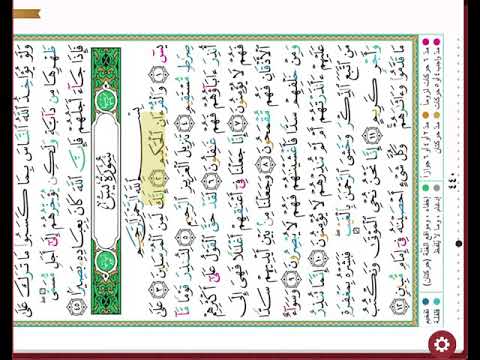 وَلَوْ يُؤَاخِذُ ٱللَّهُ ٱلنَّاسَ بِمَا كَسَبُوا۟ مَا تَرَكَ عَلَىٰ
ظَهْرِهَا مِن دَآبَّةٍ وَلَٰكِن يُؤَخِّرُهُمْ إِلَىٰٓ أَجَلٍ مُّسَمًّى
فَإِذَا جَآءَ أَجَلُهُمْ فَإِنَّ ٱللَّهَ كَانَ بِعِبَادِهِۦ بَصِيرًۢا ٤٥
سورة يس
بِسْمِ ٱللَّهِ ٱلرَّحْمَٰنِ ٱلرَّحِيمِ
يسٓ ١ وَٱلْقُرْءَانِ ٱلْحَكِيمِ ٢ إِنَّكَ لَمِنَ ٱلْمُرْسَلِينَ ٣ عَلَىٰ
صِرَٰطٍ مُّسْتَقِيمٍ ٤ تَنزِيلَ ٱلْعَزِيزِ ٱلرَّحِيمِ ٥ لِتُنذِرَ قَوْمًا مَّآ
أُنذِرَ ءَابَآؤُهُمْ فَهُمْ غَٰفِلُونَ ٦ لَقَدْ حَقَّ ٱلْقَوْلُ عَلَىٰٓ أَكْثَرِهِمْ
فَهُمْ لَا يُؤْمِنُونَ ٧ إِنَّا جَعَلْنَا فِىٓ أَعْنَٰقِهِمْ أَغْلَٰلًا فَهِىَ إِلَى
ٱلْأَذْقَانِ فَهُم مُّقْمَحُونَ ٨ وَجَعَلْنَا مِنۢ بَيْنِ أَيْدِيهِمْ سَدًّا
وَمِنْ خَلْفِهِمْ سَدًّا فَأَغْشَيْنَٰهُمْ فَهُمْ لَا يُبْصِرُونَ ٩ وَسَوَآءٌ
عَلَيْهِمْ ءَأَنذَرْتَهُمْ أَمْ لَمْ تُنذِرْهُمْ لَا يُؤْمِنُونَ ١٠ إِنَّمَا تُنذِرُ
مَنِ ٱتَّبَعَ ٱلذِّكْرَ وَخَشِىَ ٱلرَّحْمَٰنَ بِٱلْغَيْبِ فَبَشِّرْهُ بِمَغْفِرَةٍ
وَأَجْرٍ كَرِيمٍ ١١ إِنَّا نَحْنُ نُحْىِ ٱلْمَوْتَىٰ وَنَكْتُبُ
مَا قَدَّمُوا۟ وَءَاثَٰرَهُمْ وَكُلَّ شَىْءٍ أَحْصَيْنَٰهُ فِىٓ إِمَامٍ مُّبِينٍ ١٢
٤٤٠
مد ٦ حركات لزوما
مد ٢ او ٤ او ٦ جوازا
إخفاء، ومواقع الغنة (حركتان)
تفخيم
مد واجب ٤ او ٥ حركات
مد حركتان
إدغام، وما لا يلفظ
قلقلة